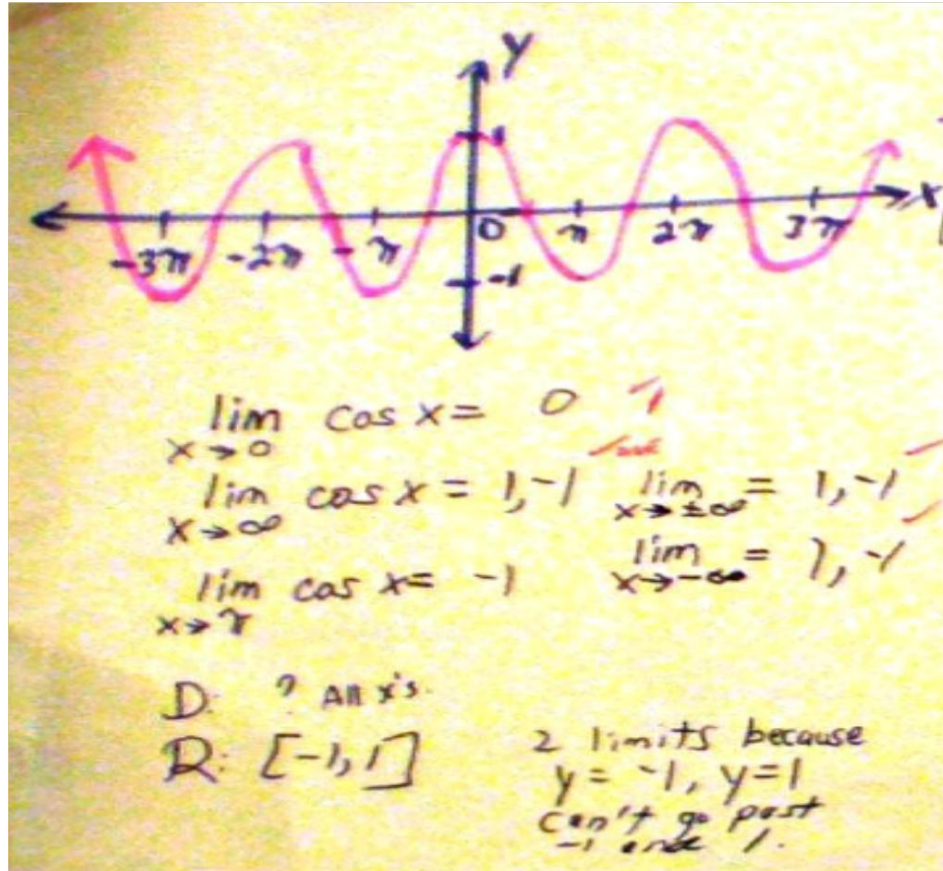 y
1
x
-3π -2π -π 0 π 2π 3π
-1
lim cos x = 0 1
x→0
lim cos x = 1,-1 lim = 1,-1
x→∞ x→±∞
lim cos x = -1 lim = 1,-1
x→π x→-∞
D: ? All x's.
R: [-1,1]
2 limits because
y = -1, y=1
can't go past
-1 and 1.